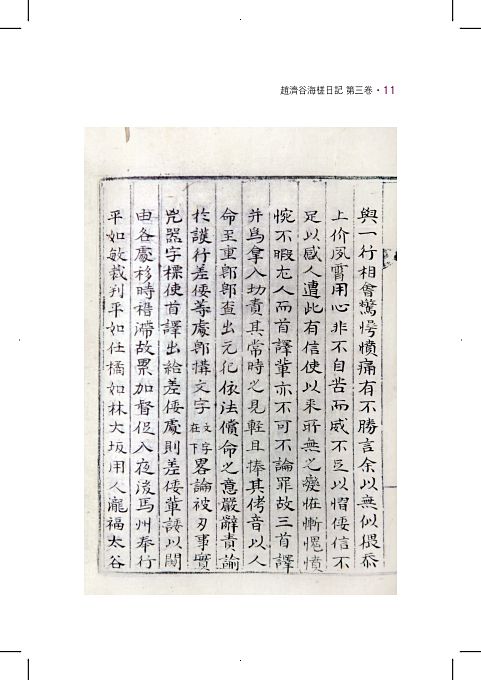 趙濟谷海槎日記 第三卷・11
與一行相會驚愕憤痛有不勝言余以無似猥忝
上价夙宵用心非不自苦而威不足以慴倭信不
足以感人遭此有信使以來所無之變恠慚愧憤
惋不暇尤人而首譯輩亦不可不論罪故三首譯
並爲拿入切責其常時之見輕且捧其侉音以人
命至重卽卽盃出元化依法償命之意嚴辭責諭
於護行差倭等處卽搆文字文字在下畧論被刃事實
兇器字標使首譯出給差倭處則差倭輩諉以閱
由各處移時稽滯故累加督促入夜後馬州奉行
平如敏裁判平如任橘如林大坂用人瀧福太谷